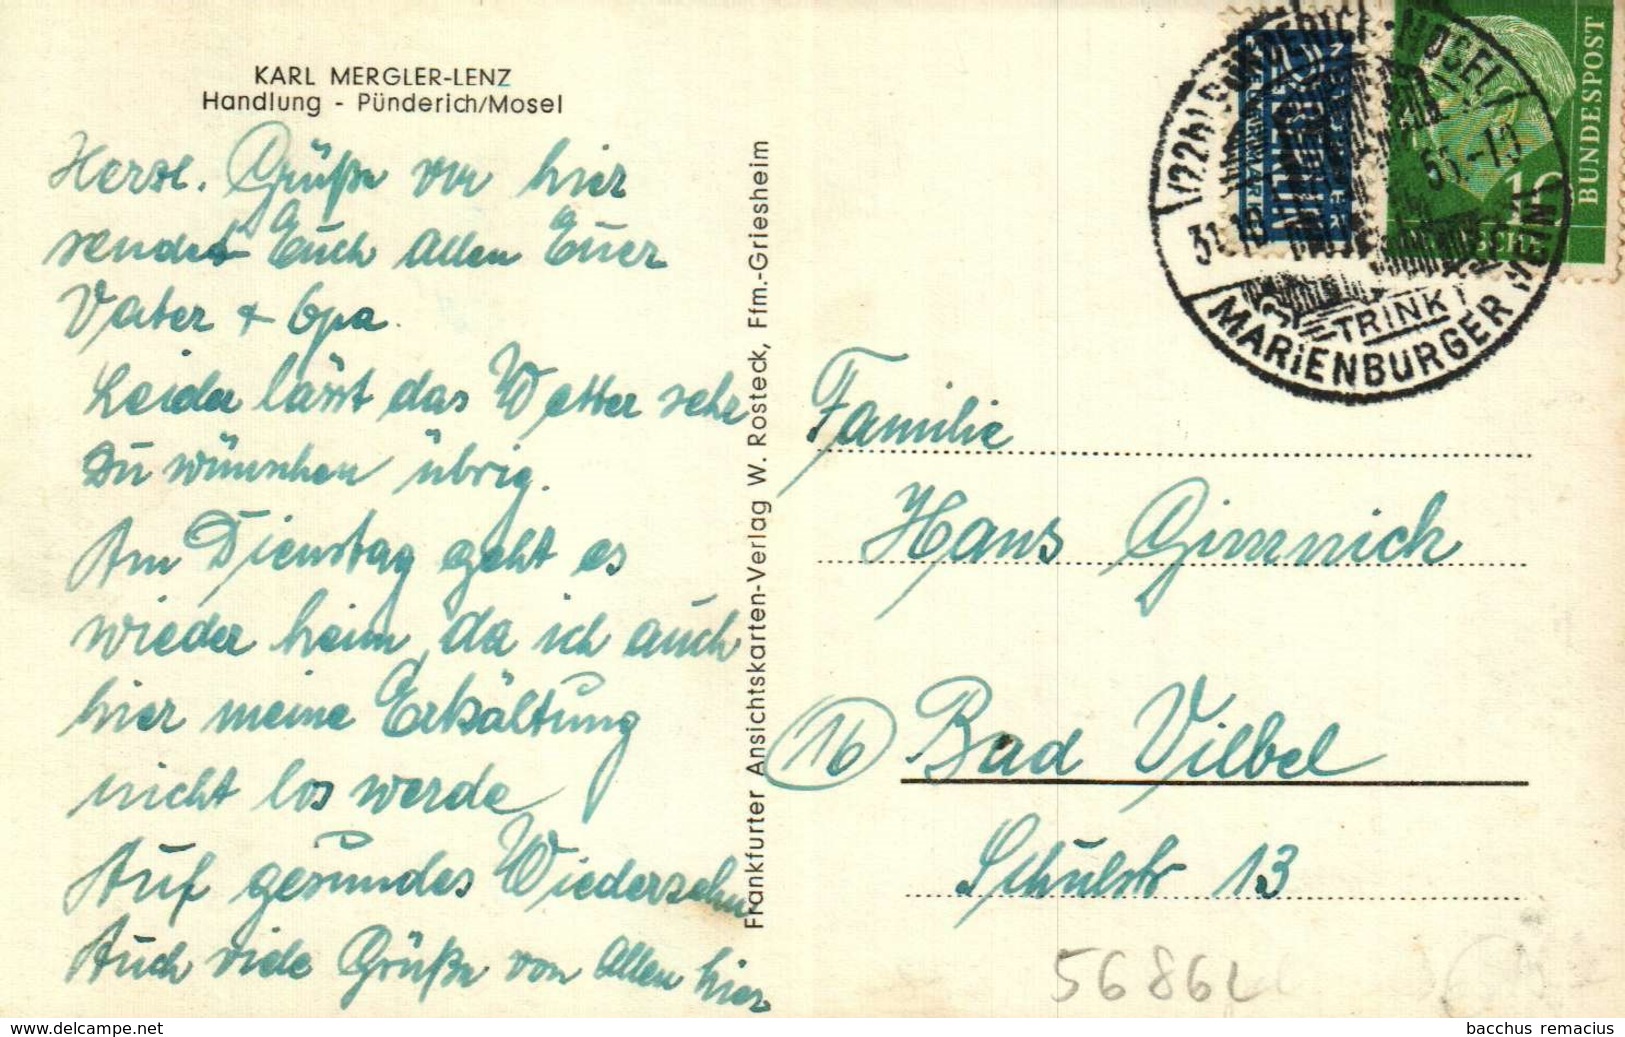 KARL MERGLER-LENZ
Handlung - Pünderich/Mosel
Herzl. Grüße von hier
sendet Euch Allen Euer
Vater + Opa.
Leider lässt das Wetter sehr
zu wünschen übrig.
Am Dienstag geht es
wieder heim, da ich auch
hier meine Erkältung
nicht los werde
Auf gesundes Wiedersehn
Auch viele Grüße von Allen hier
Frankfurter Ansichtskarten-Verlag W. Rosteck, Ffm.-Griesheim
(22b) PÜNDERICH (MOSEL)
31.10.55.-10
TRINKT
MARIENBURGER WEIN
NOTOPFER
BERLIN
STEUERMARKE
DEUTSCHE
BUNDESPOST
10
Familie
Hans Gimnich
16 Bad Vilbel
Schulstr 13
56864
bacchus remacius
www.delcampe.net